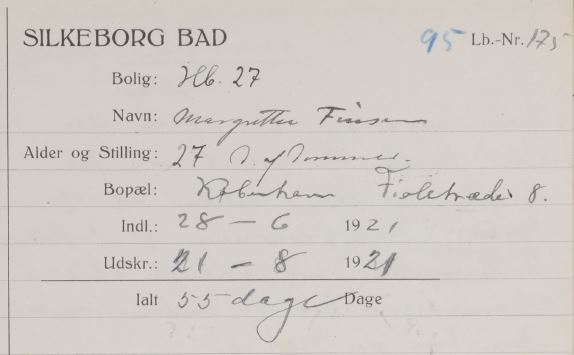 SILKEBORG BAD 95 Lb.-Nr. 175
Bolig: Hb. 27
Navn: Margrethe Finsen
Alder og Stilling: 27 D. af
Bopæl: København Fiolstræde 8.
Indl.: 28 - 6 1921
Udskr.: 21 - 8 1921
Ialt 55 dage Dage